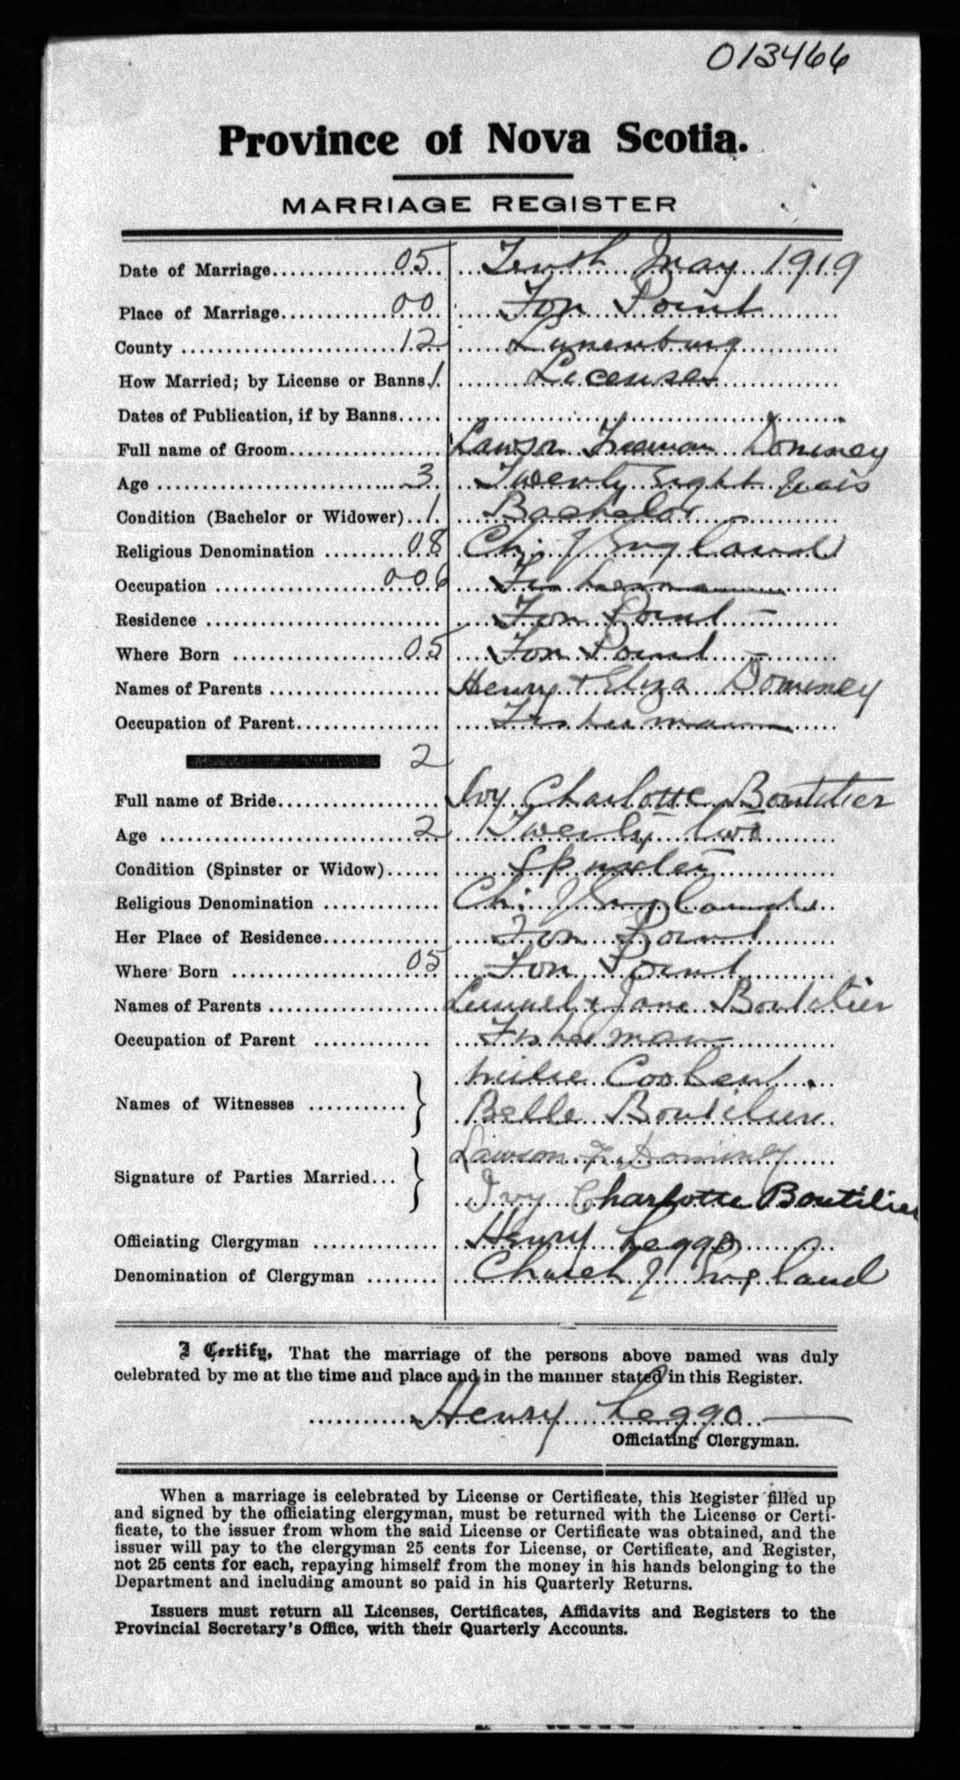 013466
Province of Nova Scotia.
MARRIAGE REGISTER
Date of Marriage 05 Tenth May 1919
Place of Marriage 00 Fox Point
County 12 Lunenburg
How Married; by License or Banns 1 License
Dates of Publication, if by Banns
Full name of Groom Lawson Freeman Dominey
Age 3 Twenty eight years
Condition (Bachelor or Widower) 1 Bachelor
Religious Denomination 08 Ch. of England
Occupation 006 Fisherman
Residence Fox Point
Where Born 05 Fox Point
Names of Parents Henry & Eliza Dominey
Occupation of Parent Fisherman
2
Full name of Bride Ivy Charlotte Boutilier
Age 2 Twenty two
Condition (Spinster or Widow) Spinster
Religious Denomination Ch. of England
Her Place of Residence Fox Point
Where Born 05 Fox Point
Names of Parents Lemuel & Jane Boutilier
Occupation of Parent Fisherman
Names of Witnesses
Belle Boutilier
Signature of Parties Married Lawson F Dominey
Ivy Charlotte Boutilier
Officiating Clergyman Henry Leggo
Denomination of Clergyman Church of England
I Certify, That the marriage of the persons above named was duly
celebrated by me at the time and place and in the manner stated in this Register.
Henry Leggo
Officiating Clergyman.
When a marriage is celebrated by License or Certificate, this Register filled up
and signed by the officiating clergyman, must be returned with the License or Certi-
ficate, to the issuer from whom the said License or Certificate was obtained, and the
issuer will pay to the clergyman 25 cents for License, or Certificate, and Register,
not 25 cents for each, repaying himself from the money in his hands belonging to the
Department and including amount so paid in his Quarterly Returns.
Issuers must return all Licenses, Certificates, Affidavits and Registers to the
Provincial Secretary's Office, with their Quarterly Accounts.